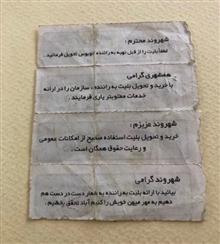 شهروند محترم :
لطفاً بلیت را از قبل تهیه به راننده اتوبوس تحویل فرمائید .
همشهری گرامی
با خرید و تحویل بلیت به راننده ، سازمان را در ارائه
خدمات مطلوبتر یاری فرمایند .
شهروند عزیزم :
خرید و تحویل بلیت استفاده صحیح از امکانات عمومی
و رعایت حقوق همگان است .
شهروند گرامی
بیائید با ارائه بلیت به راننده به شعار دست در دست هم
دهیم به مهر میهن خویش را کنیم آباد تحقق بخشیم .